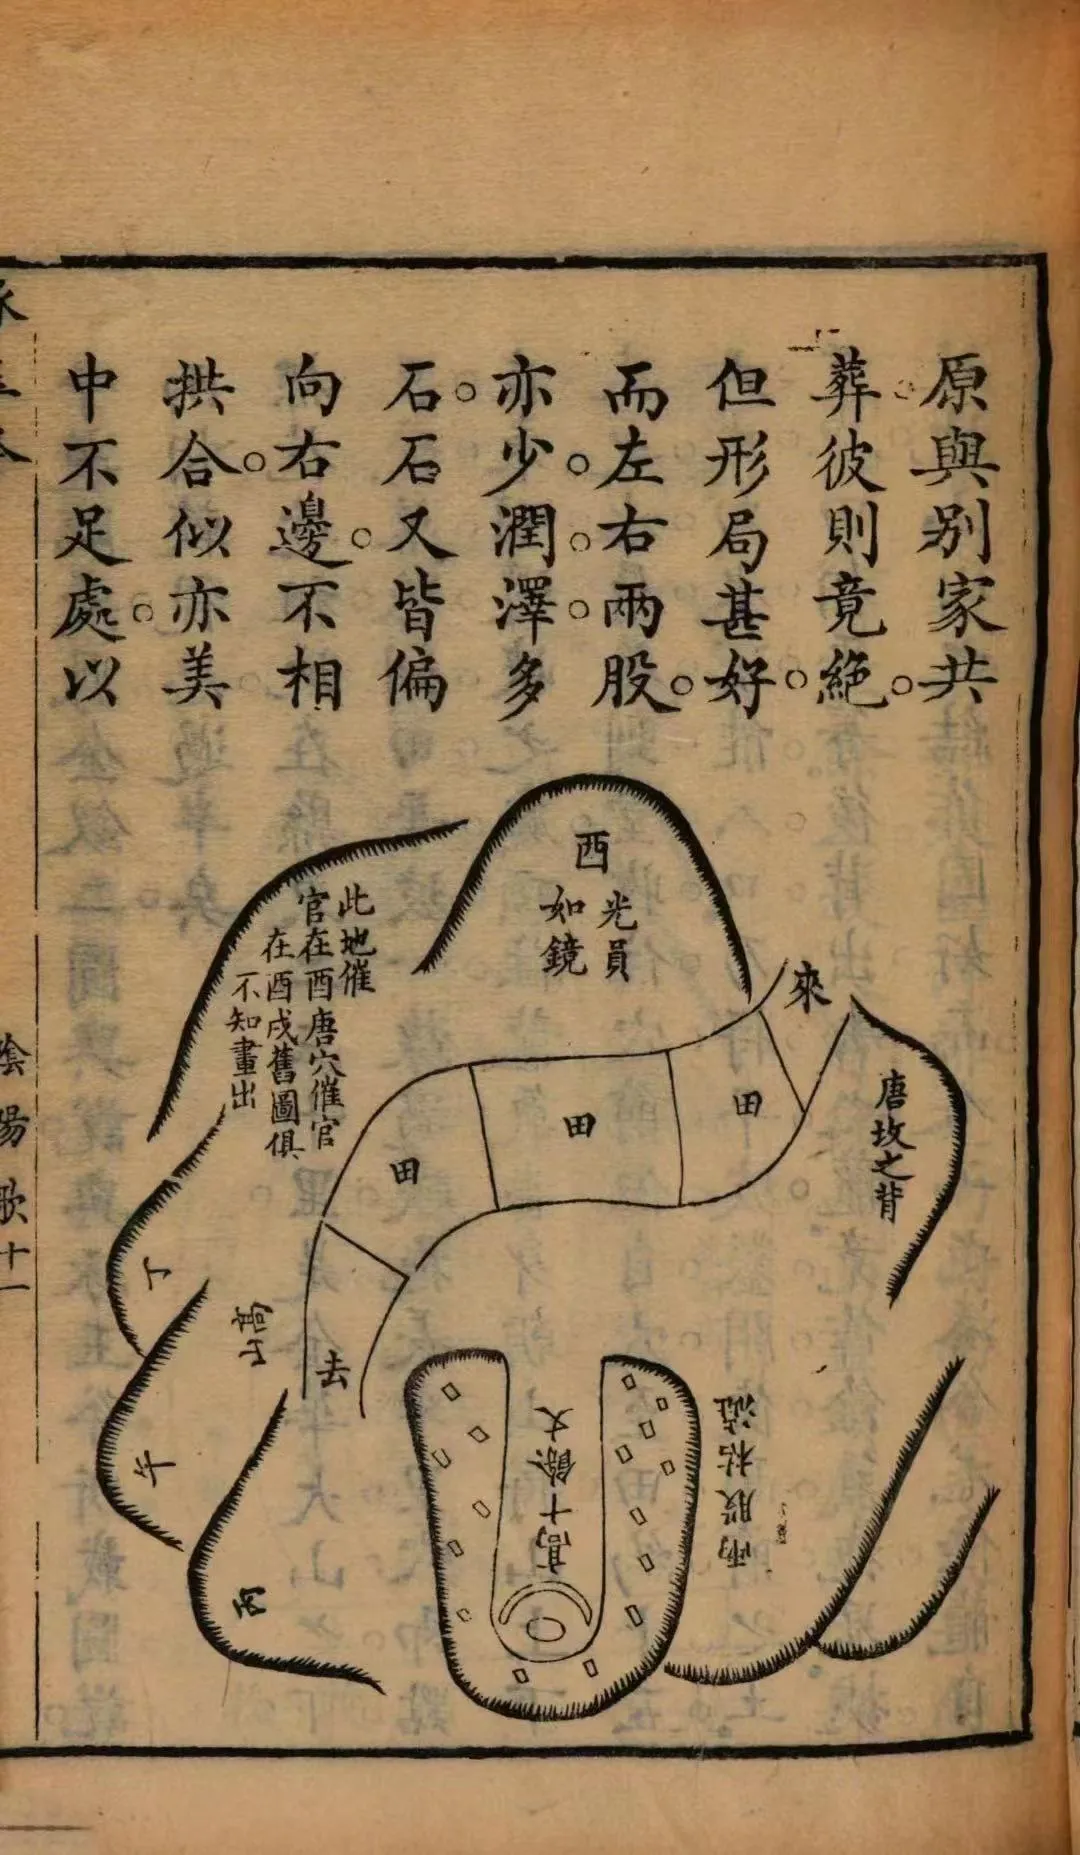 原與别家共
葬彼則竟絶
但形局甚好
而左右兩股
亦少潤澤多
石石又皆偏
向右邊不相
拱合似亦美
中不足處以
酉
光員
如鏡
來
唐坟之背
此地催
官在酉唐穴催官
在酉戌舊圖俱
不知畫出
田
田
田
去
丁
午
丙
高山
高十餘丈
兩股枯
陰陽歌十一